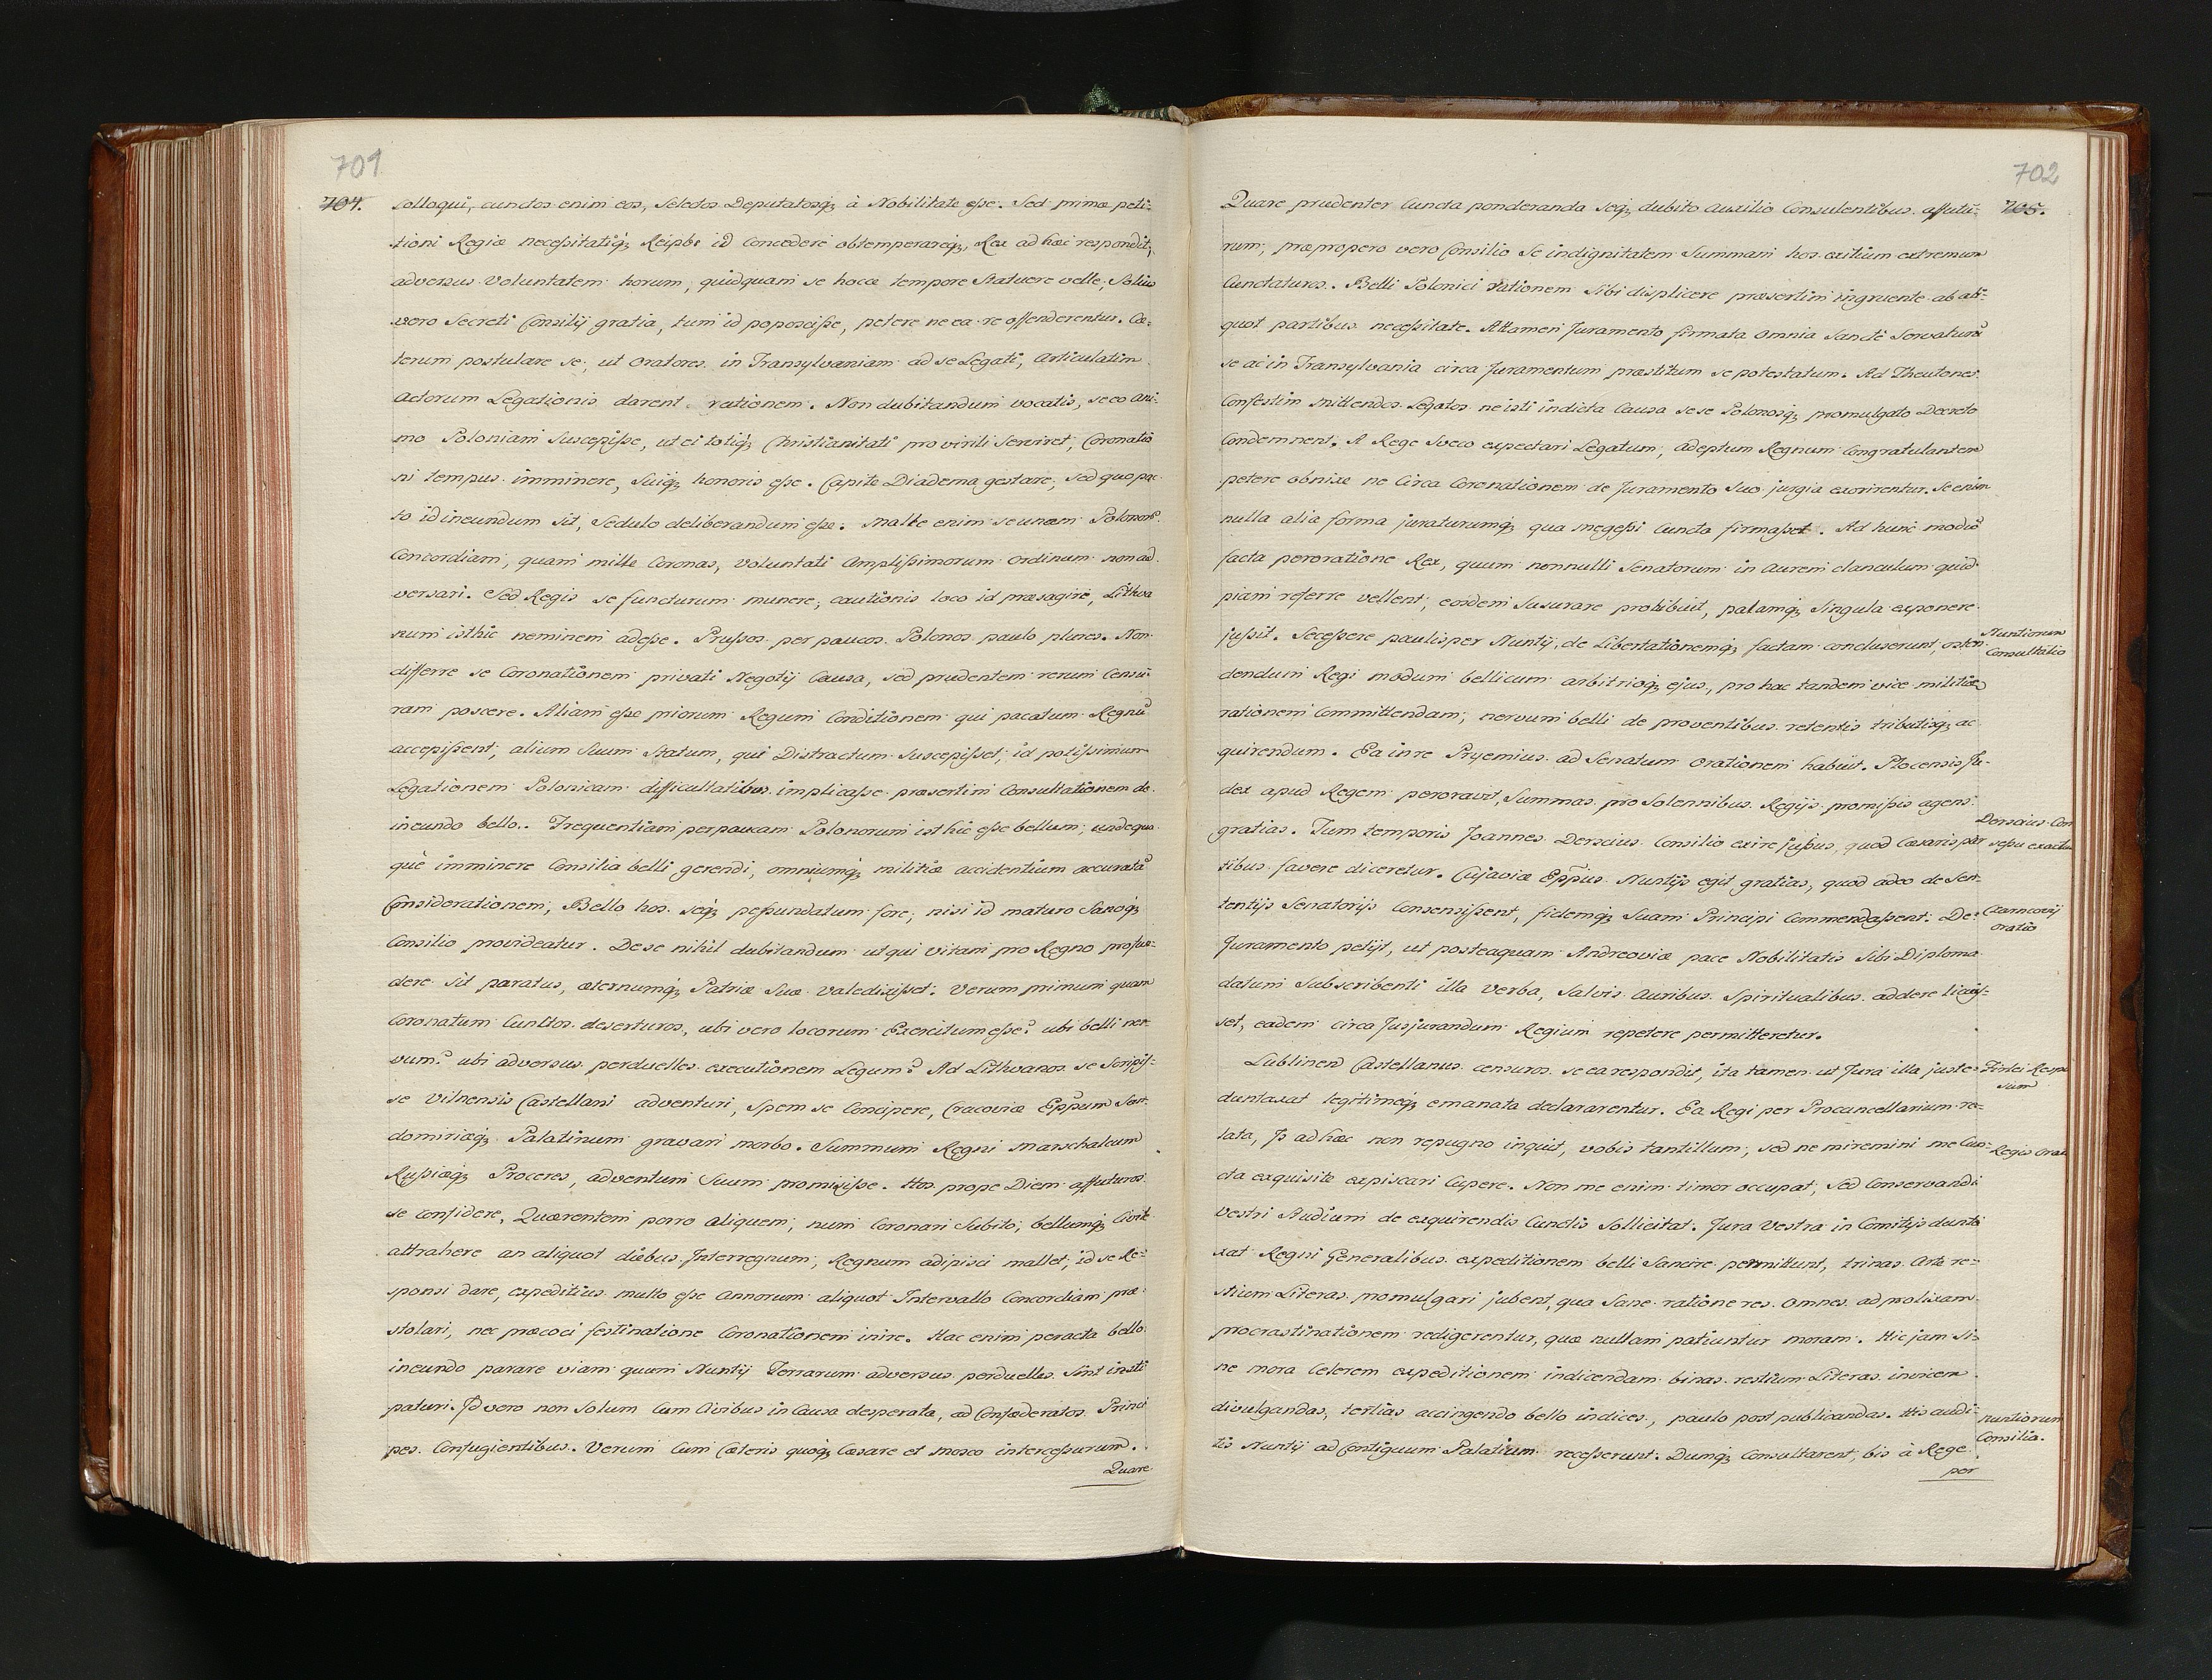 701
704.
colloqui, cunctos enim eos, Selectos Deputatosq; à Nobilitate esse. Sed primæ peti-
tioni Regiæ necessitatiq; Reipbe id concedere obtemperareq;, Rex ad hæc respondit,
adversus Voluntatem horum, quidquam se hocce tempore Statuere velle, Solius
vero Secreti Consilij gratia, tum id poposcisse, petere ne ea re offenderentur. Cæ-
terum postulare se, ut Oratores in Transylvaniam ad se Legati, Articulatim
Actorum Legationis darent rationem. Non dubitandum vocatis, se eo Ani-
mo Poloniam Suscepisse, ut ei totiq; Christianitati pro virili Serviret, Coronatio
ni tempus imminere, Suiq; honoris esse. Capite Diadema gestare, Sed quo pac
to id ineundum sit, Sedulo deliberandum esse. Malle enim se unam Polonorũ
Concordiam, quam mille Coronas, Voluntati Amplissimorum Ordinum non ad
versari. Sed Regis se functurum munere, cautionis loco id præsagire, Lithva
num isthic neminem adesse. Prussos per paucos Polonos paulo plures. Non
differre se Coronationem privati Negotij Causa, sed prudentem rerum Censu-
ram poscere. Aliam esse priorum Regum Conditionem qui pacatum Regnũ
accepissent, alium Suum Statum, qui Distractum Suscepisset, id potissimum
Legationem Polonicam difficultatibus implicasse præsertim Consultationem de
ineundo bello. Frequentiam perpaucam Polonorum isthic esse bellum, undequa
què imminere Consilia belli gerendi, omniumq; militiæ accidentium accuratã
Considerationem, Bello hos seq; pessundatum fore, nisi id maturo Sanoq;
Consilio provideatur. De se nihil dubitandum ut qui Vitam pro Regno profun-
dere sit paratus, æternumq; Patriæ Suæ Valedixisset. Verum primum quam
Coronatum Cunctos deserturos, ubi vero locorum Exercitum esse? ubi belli ner-
vum? ubi adversus perduelles executionem Legum? Ad Lithvanos se Scripsis-
se Vilnensis Castellani adventuri, Spem se Concipere, Cracoviæ Eppum San-
domiriæq; Palatinum gravari morbo. Summum Regni Marschalcum
Russiæq; Proceres, adventum Suum promisisse. Hos prope Diem affuturos
se confidere, Quærentem porro aliquem, num Coronari Subito, bellumq; Civile
attrahere an aliquot diebus Interregnum, Regnum adipisci mallet, id se Re-
sponsi dare, expeditius multo esse Annorum aliquot Intervallo Concordiam præ-
stolari, nec præcoci festinatione Coronationem inire. Hac enim peracta bello
ineundo parare viam quum Nuntij Terrarum adversus perduelles Sint insti
paturi. Id vero non Solum Cum Civibus in Causa desperata, ad Confœderatos Princi
pes Confugientibus. Verum Cum Cæteris quoq; Cæsare et Mosco intercessurum.
Quare
702
705.
Quare prudenter Cuncta ponderanda seq; dubito Auxilio Consulentibus affutu-
rum, præpropero vero Consilio Se indignitatem Summam hos exitium extremum
Cunctaturos. Belli Polonici rationem Sibi displicere præsertim ingruente ab ali-
quot partibus necessitate. Attamen Juramento firmata Omnia Sanctè Servaturũ
se ac in Transylvania circa Juramentum præstitum se potestatum. Ad Theutones
Confestim Mittendos Legatos ne isti indicta Causa sese Polonosq; promulgato Decreto
Condemnent. A Rege Sveco expectari Legatum, Adeptum Regnum Congratulantem
petere obnixe ne Circa Coronationem de Juramento Suo jurgia exorirentur. Se enim
nulla alia forma juraturumq; qua Megessi Cuncta firmasset. Ad hunc modũ
facta peroratione Rex, quum nonnulli Senatorum in Aurem clanculum quid-
piam referre vellent, eosdem Susurare prohibuit, palamq; Singula exponere
jussit. Secessere paulisper Nuntij, de Libertationemq; factam concluserunt, osten-
dendum Regi modum bellicum arbitrioq; ejus, pro hac tandem vice militiæ
rationem Committendam, nervum belli de proventibus retentis tributisq; ac
quirendum. Ea in re Pryemius ad Senatum Orationem habuit. Plocensis Ju-
dex apud Regem peroravit, Summas pro Solennibus Regijs promissis agens
gratias. Tum temporis Joannes Dersaius Consilio exire jussus, quod Cæsaris par
tibus favere diceretur. Cujaviæ Eppus Nuntijs egit gratias, quod adeo de Sen-
tentijs Senatorijs Consensissent, fidemq; Suam Principi Commendassent: De
Juramento petijt, ut posteaquam Andreoviæ pace Nobilitatis Sibi Diploma
datum Subscribenti illa Verba, Salvis Auribus Spiritualibus addere licuis-
set, eadem circa Jusjurandum Regium repetere permitteretur.
Lublinen Castellanus censuros se ea respondit, ita tamen ut Jura illa juste
duntaxat legitimeq; emanata declararentur. Ea Regi per Procancellarium re-
lata, Is ad hæc non repugno inquit, vobis tantillum, sed ne miremini me Cun-
cta exquisite expiscari Cupere. Non me enim timor occupat, Sed Conservandi
Vestri Studium de exquirendis Cunctis Sollicitat. Jura Vestra in Comitijs dunta
xat Regni Generalibus expeditionem belli Sancire permittunt, trinas Arte re-
stium Literas promulgari jubent, qua Sane ratione res Omnes ad prolixam
procrastinationem redigerentur, quæ nullam patiuntur moram. Hic jam Si-
ne mora Celerem expeditionem indicendam binas restium Literas invicem
divulgandas, tertias accingendo bello indices, paulo post publicandas. His audi-
tis Nuntij ad Contiguum Palatium recesserunt. Dumq; Consultarent, bis à Rege
per
Nuntiorum
Consultatio
Dersaius Con
sessu exactus
Czarncovij
oratio
Firlei Respo
sum
Regis Orat
Nuntiorum
Consilia.